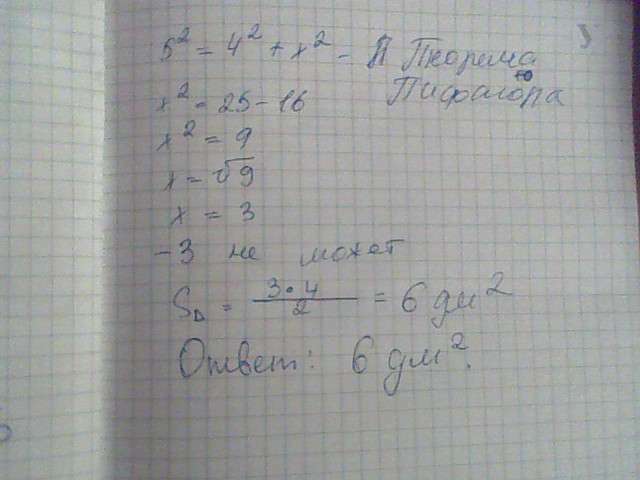 5² = 4² + x² - Теорема
Пифагора
x² = 25 - 16
x² = 9
x = √9
x = 3
-3 не может
S△ = 3·4/2 = 6 дм²
Ответ: 6 дм².